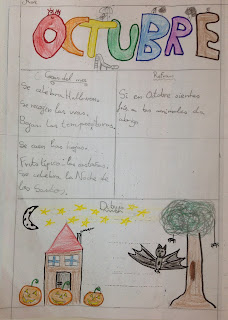 OCTUBRE
Cosas del mes
Se celebra Halloween.
Se recogen las uvas.
Bajan las temperaturas.
Se caen las hojas.
Fruto típico: las castañas.
Se celebra la Noche de
los Santos.
Refrán
Si en Octubre sientes
frío a los animales da
abrigo
Dibujo